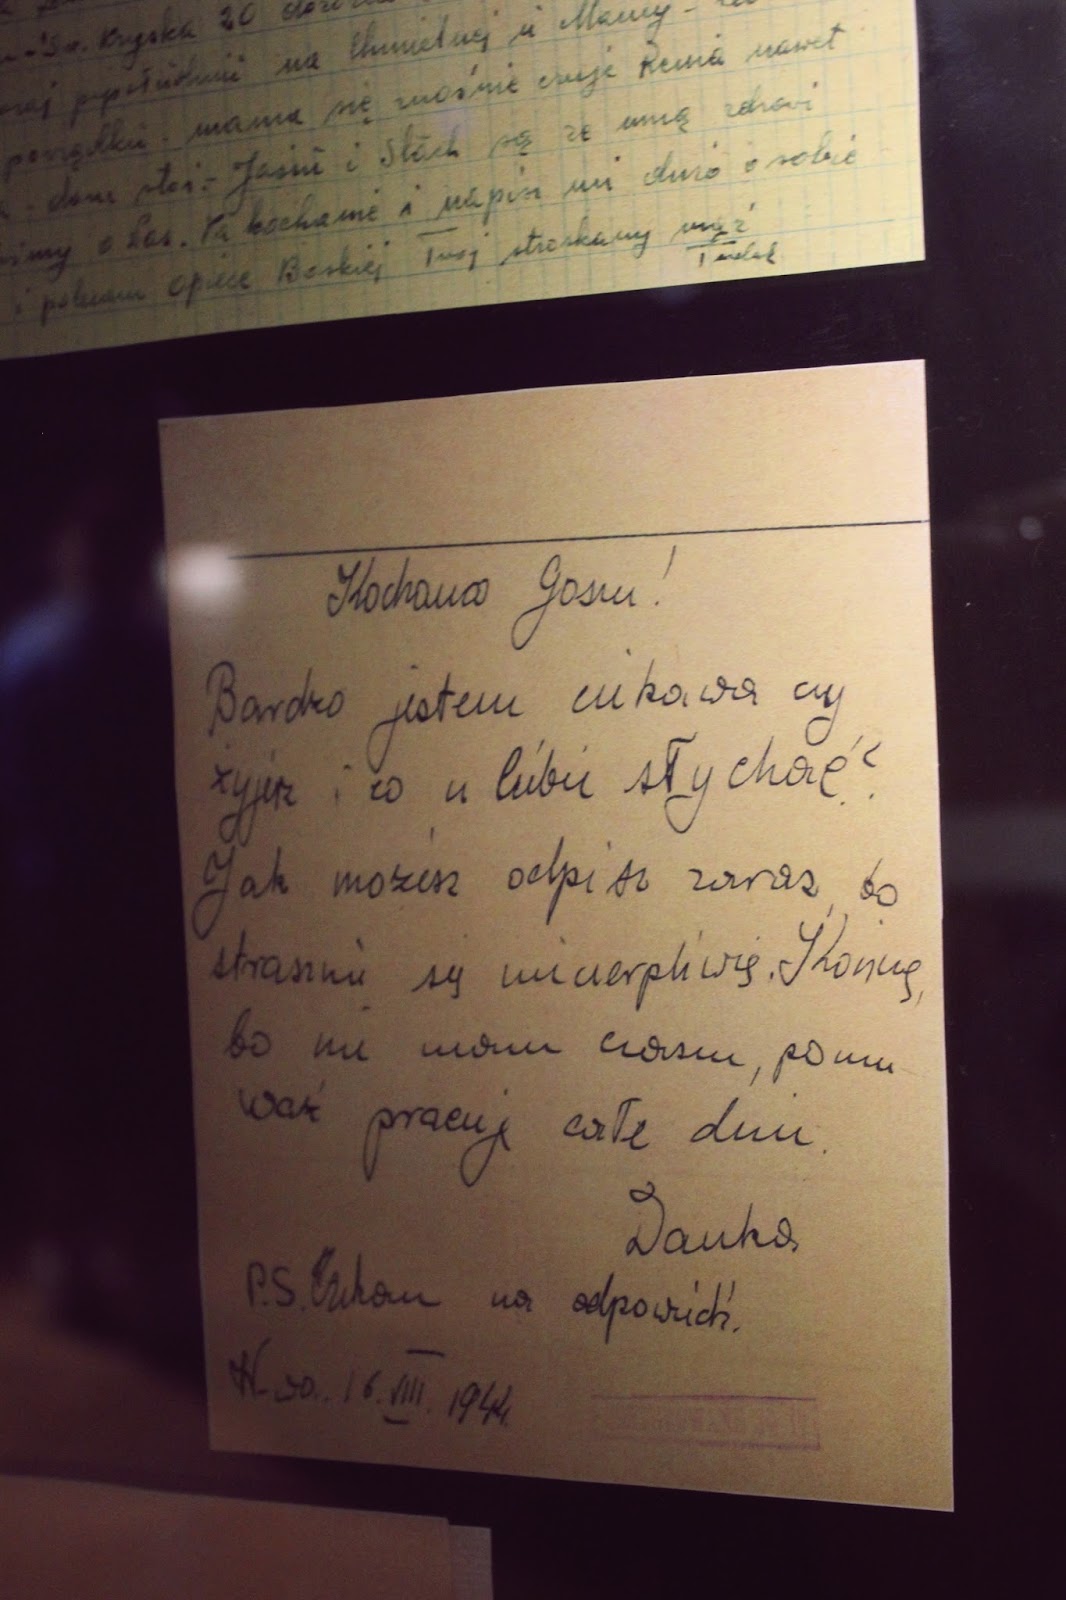 Kryska 20
popołudniu na Chmielnej u Mamy
porządku. mama się nieźle czuje Renia nawet
stoi. Jasiu i Stach są ze mną zdrowi
o Las. Pa kochanie i napisz mi dużo o sobie
i polecam opiece Boskiej Twój stroskany mąż
Tadek
Kochana Gosiu!
Bardzo jestem ciekawa czy
żyjesz i co u Ciebie słychać?
Jak możesz odpisz zaraz, bo
strasznie się niecierpliwię. Kończę,
bo nie mam czasu, ponie-
waż pracuję całe dnie.
Danka
P.S. Czekam na odpowiedź.
W-wa. 16.VIII.1944.